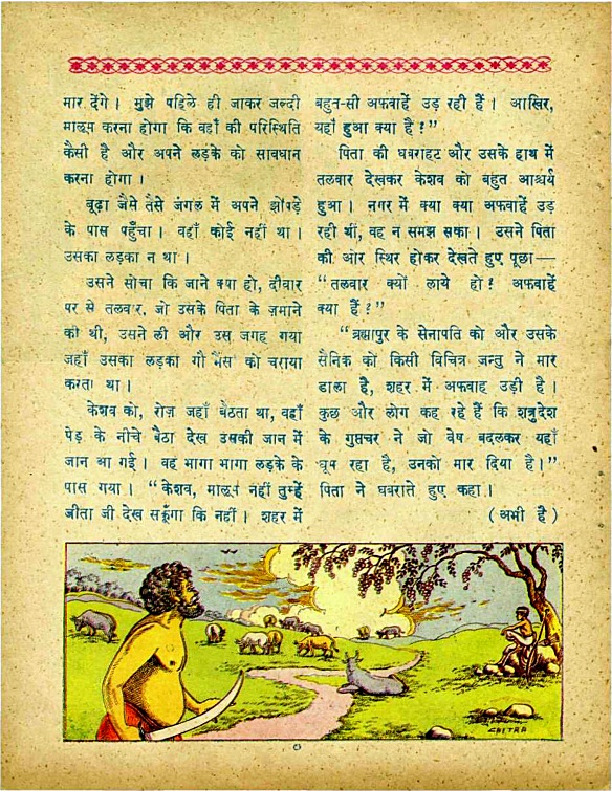 मार देंगे। मुझे पहिले ही जाकर जल्दी
मालूम करना होगा कि वहाँ की परिस्थिति
कैसी है और अपने लड़के को सावधान
करना होगा।
बूढ़ा जैसे तैसे जंगल में अपने झोंपड़े
के पास पहुँचा। वहाँ कोई नहीं था।
उसका लड़का न था।
उसने सोचा कि जाने क्या हो, दीवार
पर से तलवार, जो उसके पिता के ज़माने
की थी, उसने ली और उस जगह गया
जहाँ उसका लड़का गौ भैंस को चराया
करता था।
केशव को, रोज़ जहाँ बैठता था, वहाँ
पेड़ के नीचे बैठा देख उसकी जान में
जान आ गई। वह भागा भागा लड़के के
पास गया। “केशव, मालूम नहीं तुम्हें
जीता जी देख सकूँगा कि नहीं। शहर में
बहुत-सी अफवाहें उड़ रही हैं। आखिर,
यहाँ हुआ क्या है?”
पिता की घबराहट और उसके हाथ में
तलवार देखकर केशव को बहुत आश्चर्य
हुआ। नगर में क्या क्या अफवाहें उड़
रही थीं, वह न समझ सका। उसने पिता
की ओर स्थिर होकर देखते हुए पूछा—
“तलवार क्यों लाये हो? अफवाहें
क्या हैं?”
“ब्रह्मापुर के सेनापति को और उसके
सैनिक को किसी विचित्र जन्तु ने मार
डाला है, शहर में अफवाह उड़ी है।
कुछ और लोग कह रहे हैं कि शत्रुदेश
के गुप्तचर ने जो वेष बदलकर यहाँ
घूम रहा है, उनको मार दिया है।”
पिता ने घबराते हुए कहा।
(अभी है)
CHITRA